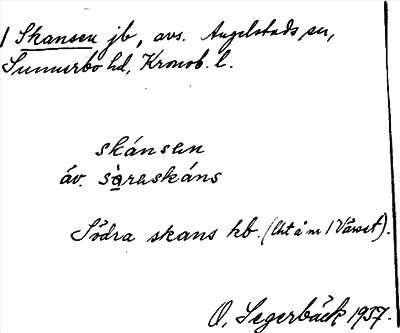 1 Skansen jb, avs. Angelstads sn,
Sunnerbo hd, Kronob. l.
skánsen
áv. sὰraskáns
Södra skans hb. (Ext å nr 1 Värset).
O. Segerbäck 1937.